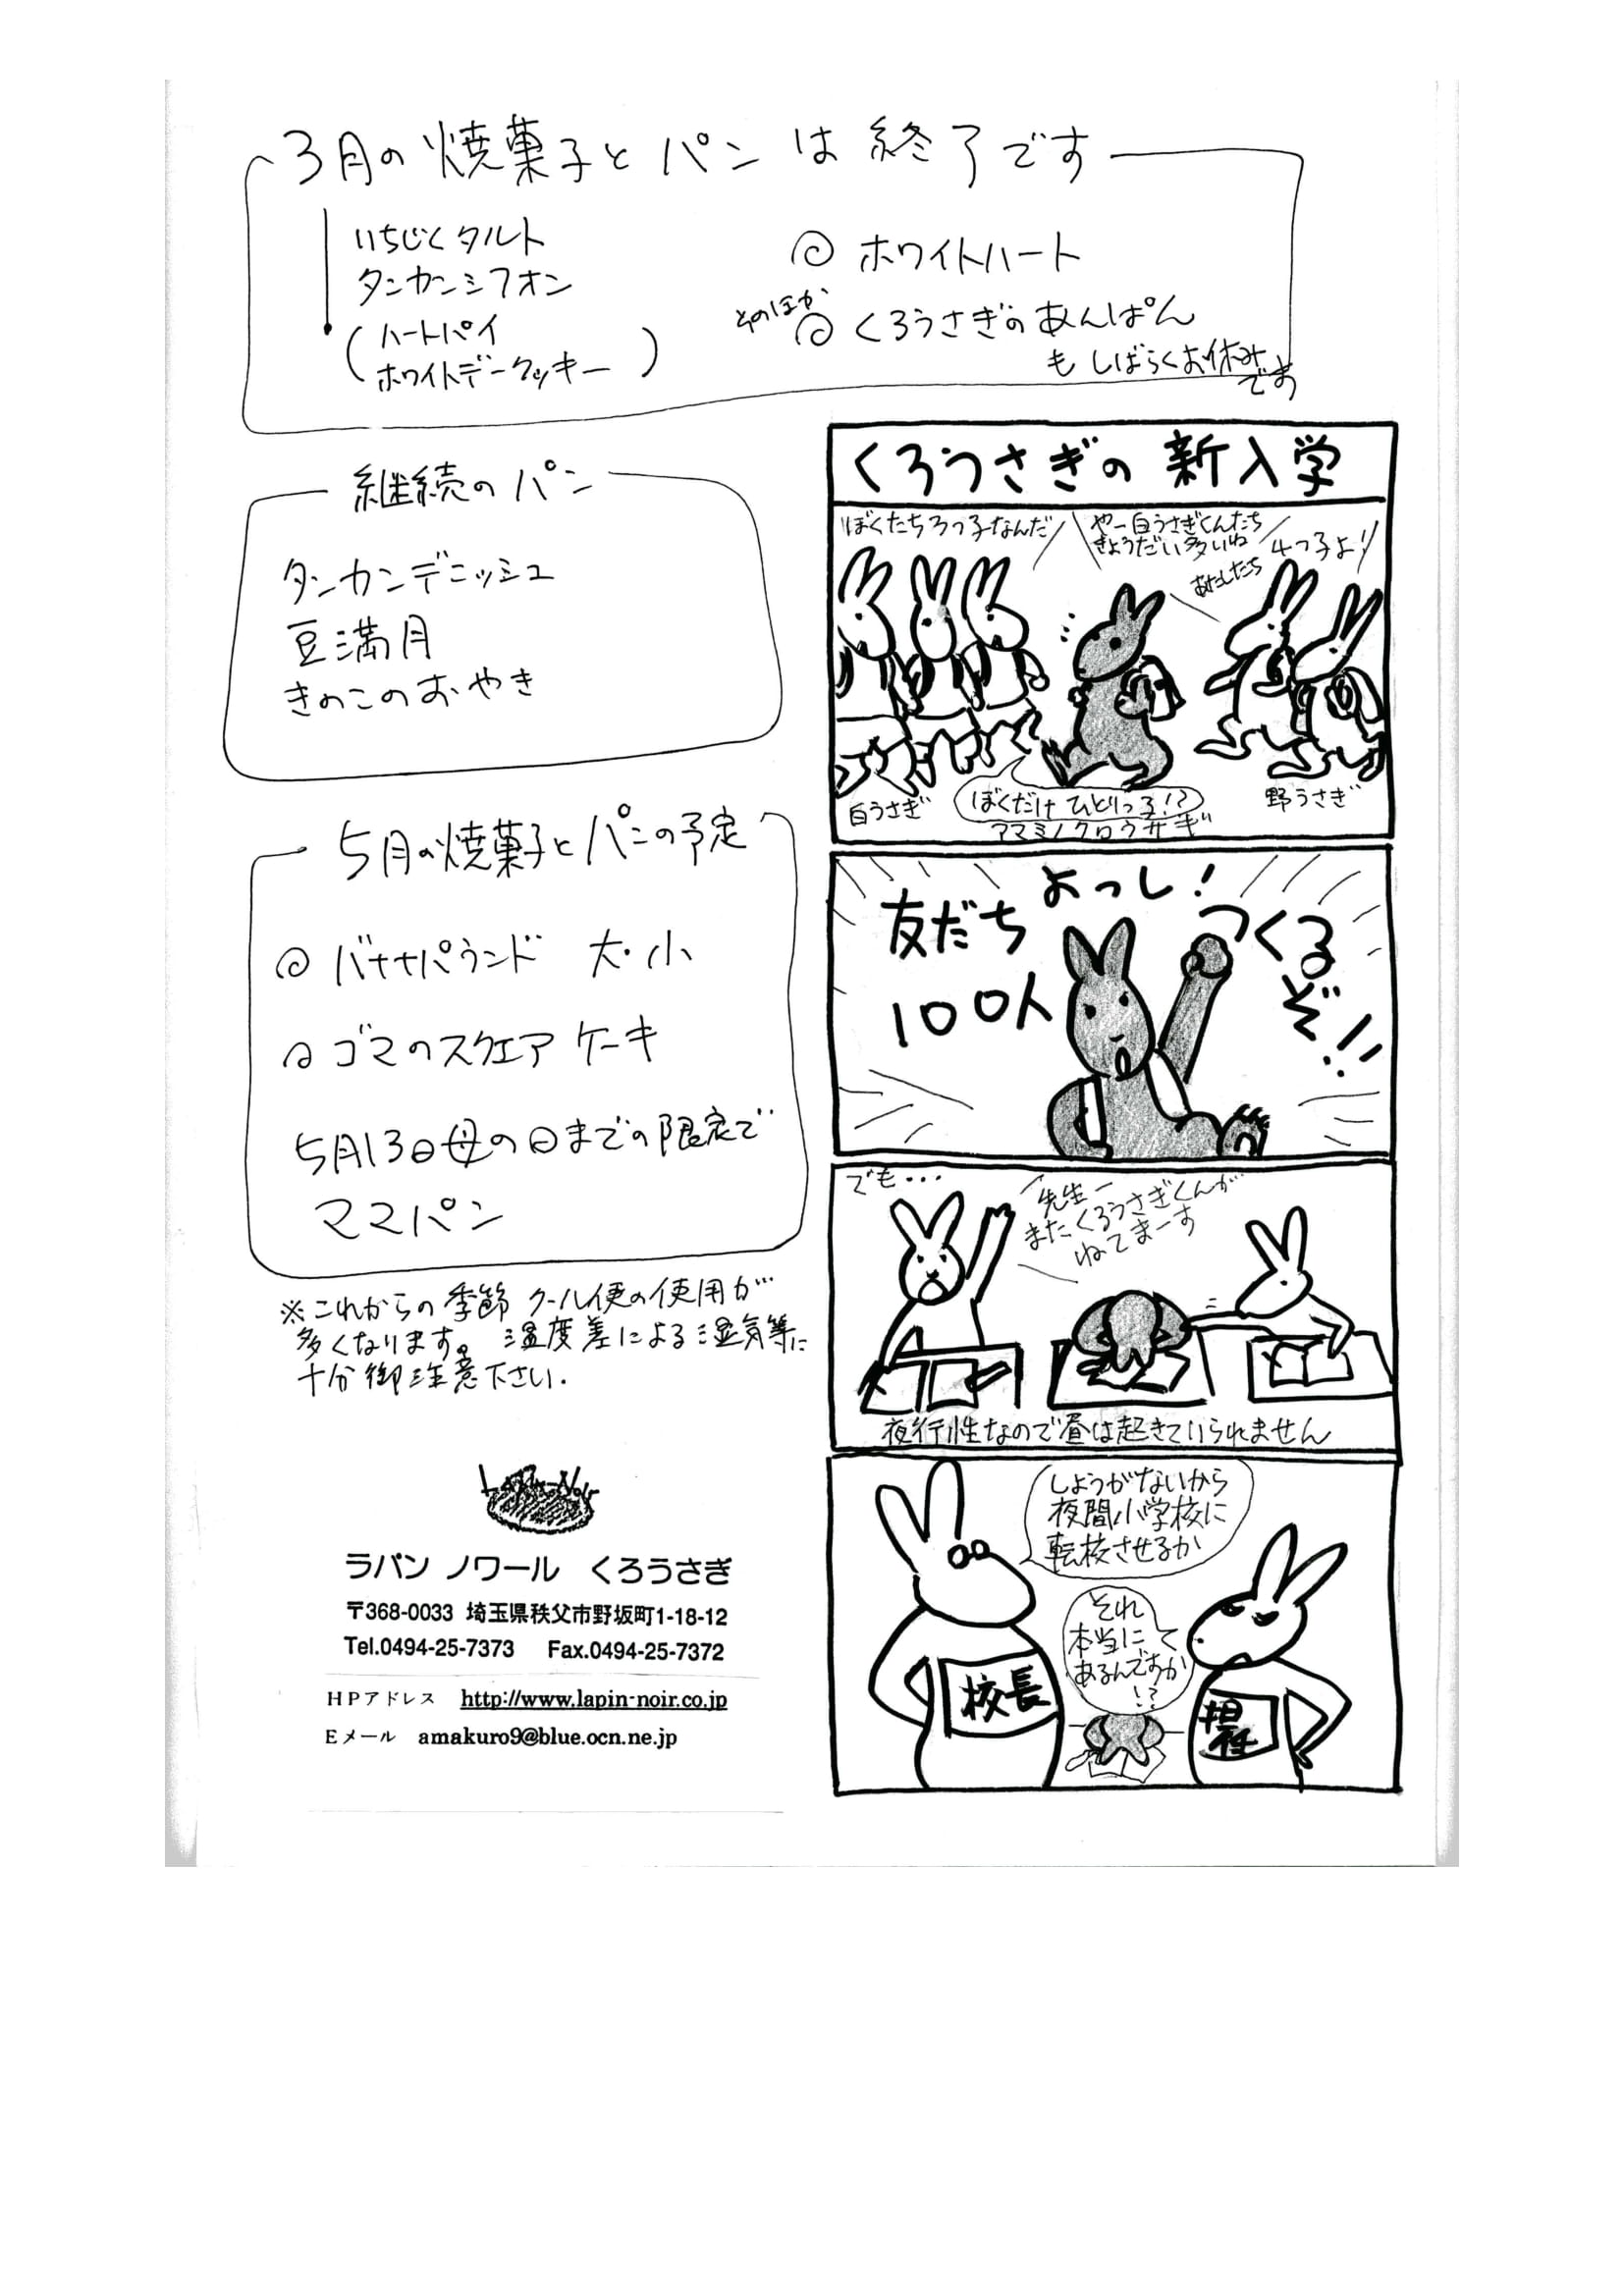 3月の焼菓子とパンは終了です
いちじくタルト
タンカンシフォン
(ハートパイ
ホワイトデークッキー)
◎ ホワイトハート
そのほか
◎ くろうさぎのあんぱん
も しばらくお休み
です
継続のパン
タンカンデニッシュ
豆満月
きのこのおやき
5月の焼菓子とパンの予定
◎ バナナパウンド 大・小
◎ ゴマのスクエアケーキ
5月13日母の日までの限定で
ママパン
※これからの季節 クール便の使用が
多くなります。温度差による湿気等に
十分御注意下さい.
Lapin Noir
ラパン ノワール くろうさぎ
〒368-0033 埼玉県秩父市野坂町1-18-12
Tel.0494-25-7373 Fax.0494-25-7372
HPアドレス http://www.lapin-noir.co.jp
Eメール amakuro9@blue.ocn.ne.jp
くろうさぎの新入学
ぼくたち3つ子なんだ
やー白うさぎくんたち
きょうだい多いね
あたしたち
4つ子よ!
白うさぎ
ぼくだけ ひとりっ子!?
アマミノクロウサギ
野うさぎ
よっし!
友だち
100人
つくる
ぞ!!
でも...
先生ー
またくろうさぎくんが
ねてまーす
夜行性なので昼は起きていられません
しょうがないから
夜間小学校に
転校させるか
それ
本当に
あるんですか
!?
校長
担任